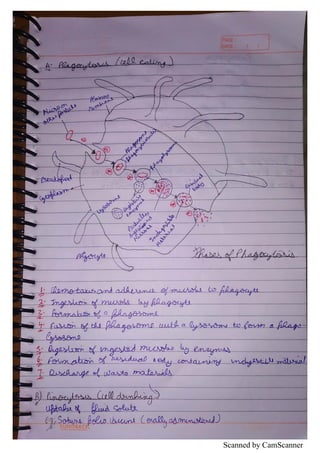 PAGE
DATE
A. Phagocytosis (cell eating)
Microbe or
other particle
Plasma
membrane
Phagosome
(Phagocytic vesicle)
Phagolysosome
Pseudopod
Cytoplasm
Lysosome
Digestive
enzymes
Partially
digested
microbe
Indigestible
material
Residual
body
Phagocyte
Phases of Phagocytosis
1. Chemotaxis and adherence of microbe to phagocyte
2. Ingestion of microbe by phagocyte
3. Formation of a phagosome
4. Fusion of the phagosome with a lysosome to form a phago-
lysosome
5. Digestion of ingested microbe by enzymes
6. Formation of residual body containing indigestible material
7. Discharge of waste materials
B) Pinocytosis (cell drinking)
Uptake of fluid solute
eg. Sabine polio vaccine (orally administered)
Scanned by CamScanner